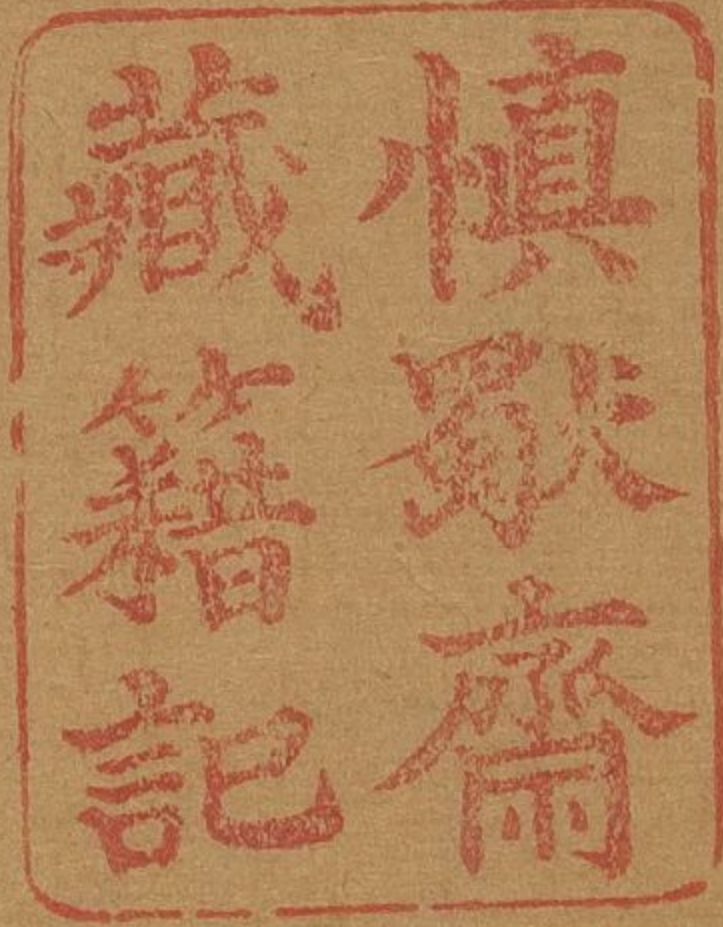 慎獨齋
藏籍記